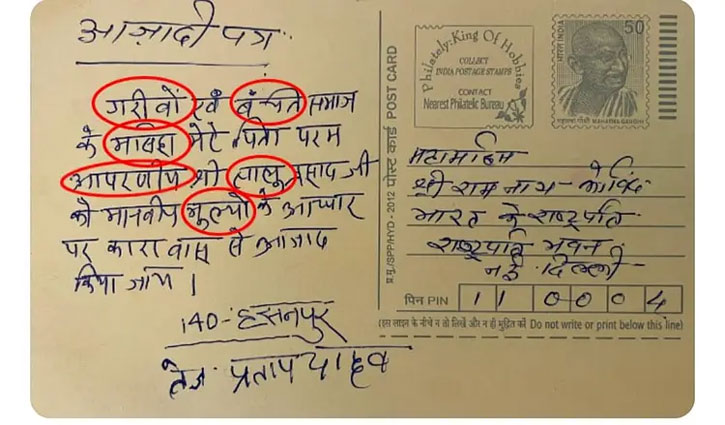 आज़ादी पत्र
गरीवों एवं बंचित समाज
के मसिहा मेरे पिता परम
आपरणीय श्री लालु प्रसाद जी
को मानवीय मुल्यों के आधार
पर कारावास से आजाद
किया जाय।
140-हसनपुर
तेज प्रताप यादव
पोस्ट कार्ड POST CARD
प्र.मु./SPP/HYD - 2012
Philately: King Of Hobbies
COLLECT
INDIA POSTAGE STAMPS
CONTACT
Nearest Philatelic Bureau
भारत INDIA
50
महात्मा गाँधी MAHATMA GANDHI
महामहिम
श्री राम नाथ कोविंद
भारत के राष्ट्रपति
राष्ट्रपति भवन
नई दिल्ली
पिन PIN 110004
(इस लाइन के नीचे न तो लिखें और न ही मुद्रित करें Do not write or print below this line)